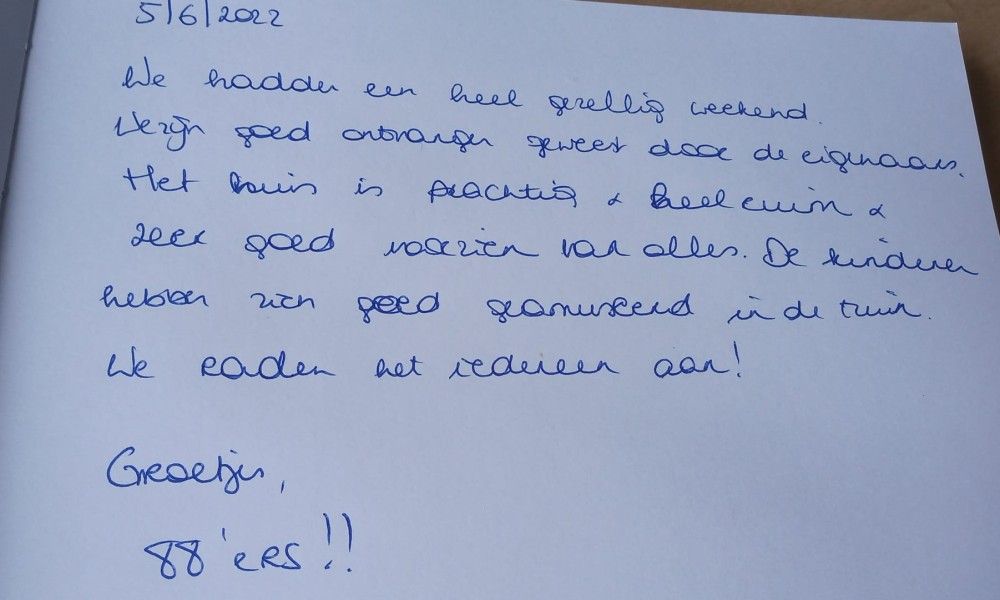 5/6/2022
We hadden een heel gezellig weekend.
We zijn goed ontvangen geweest door de eigenaars.
Het huis is prachtig & heel ruim &
zeer goed voorzien van alles. De kinderen
hebben zich goed geamuseerd in de tuin.
We raden het iedereen aan!
Groetjes,
88'ers!!